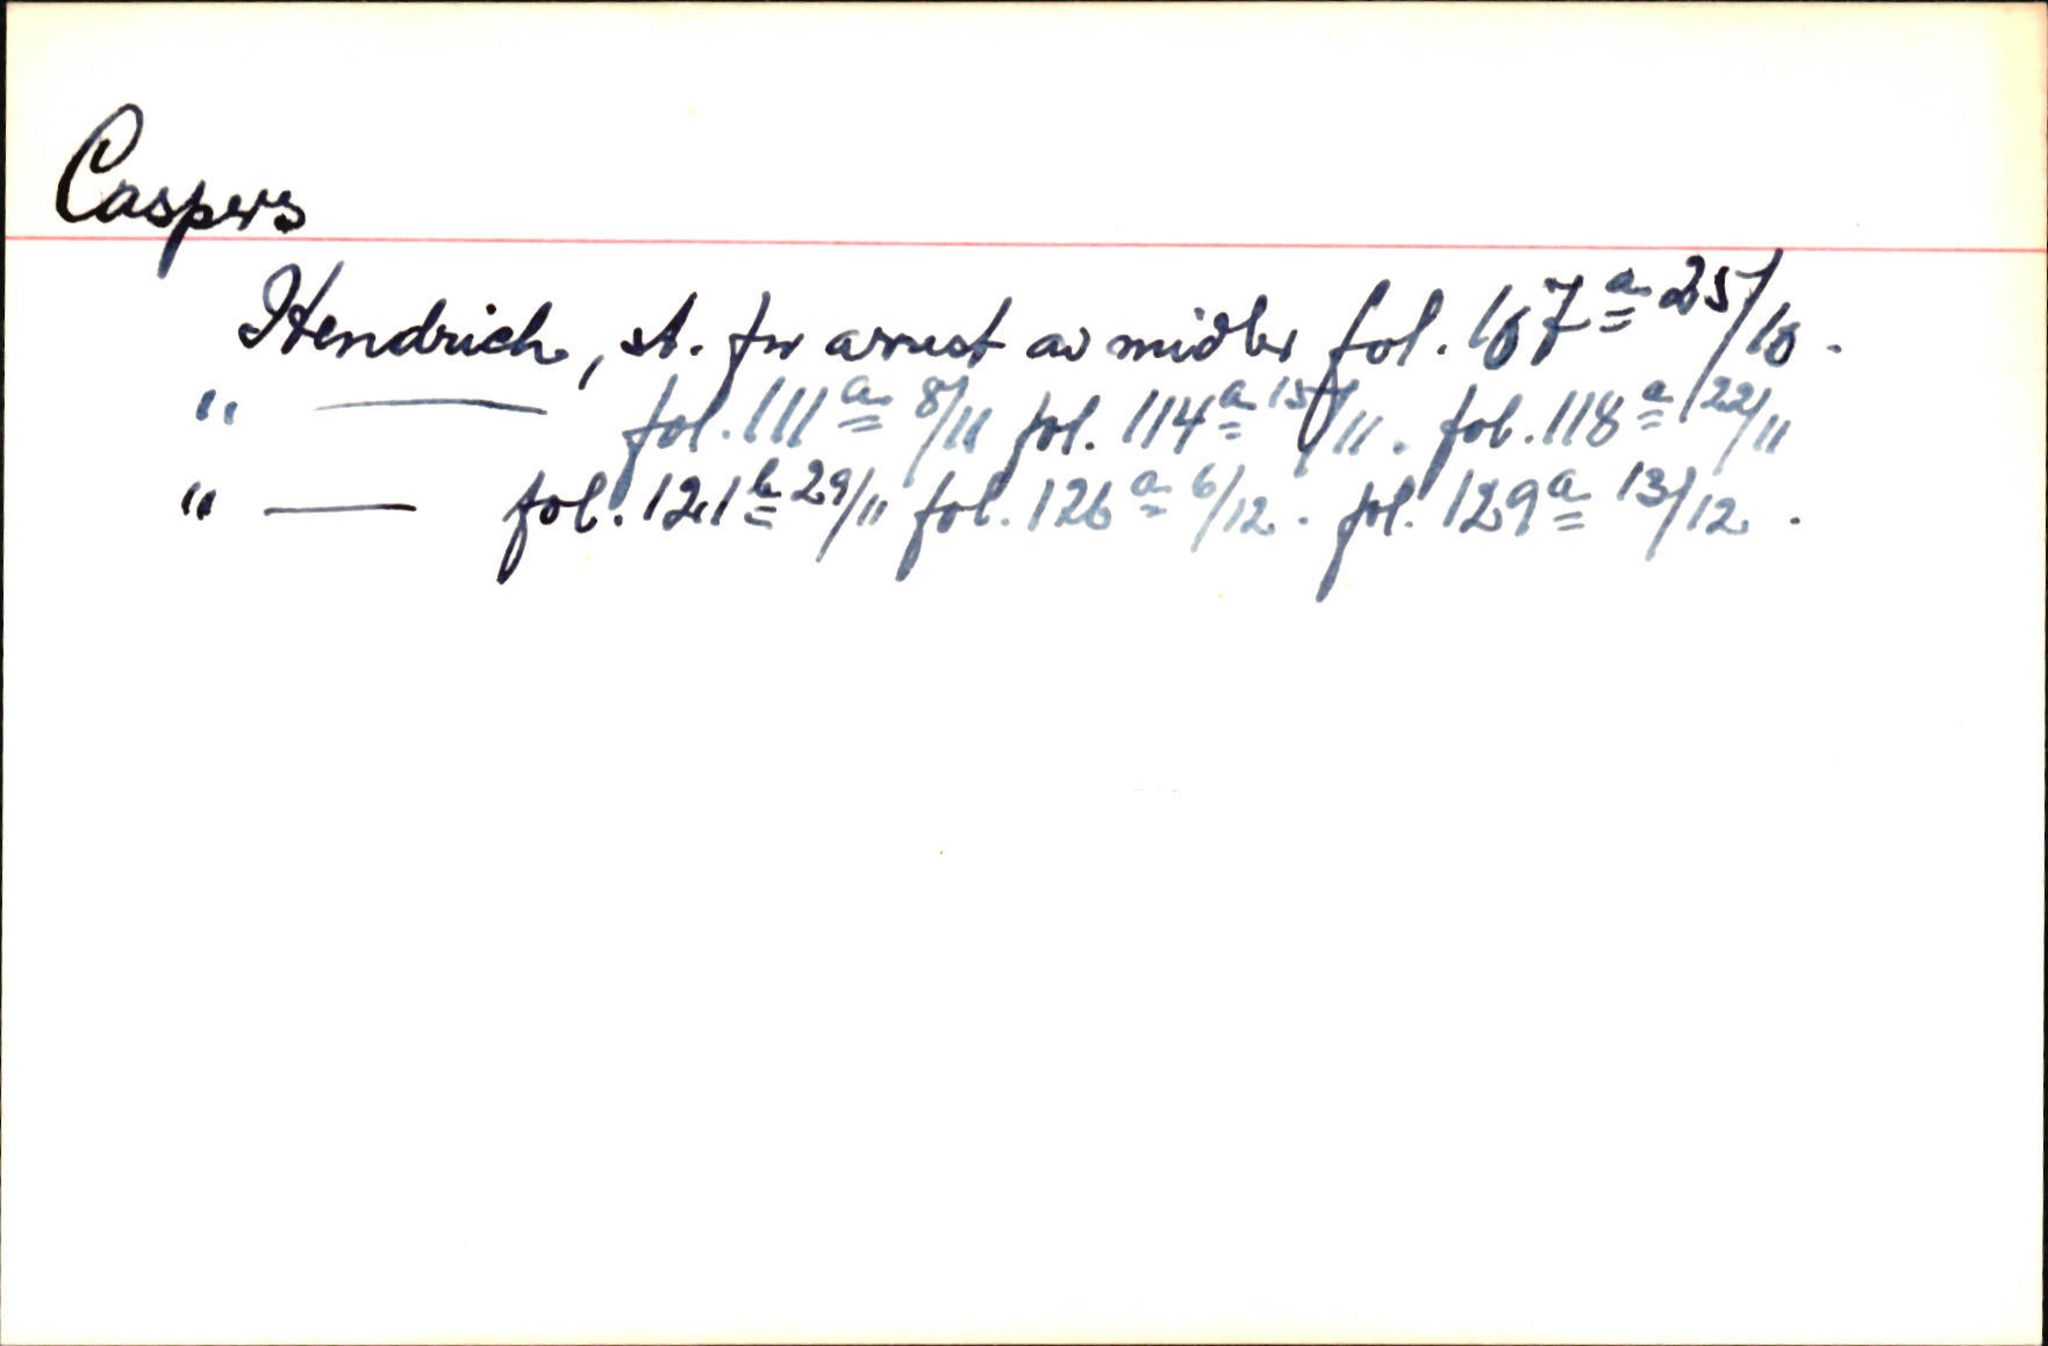 Caspers
Hendrich, st. for arrest av midler fol. 107ª 25/10.
" — fol. 111ª 8/11 fol. 114ª 15/11. fol. 118ª 22/11
" — fol. 121b 29/11 fol. 126ª 6/12. fol. 129ª 13/12.